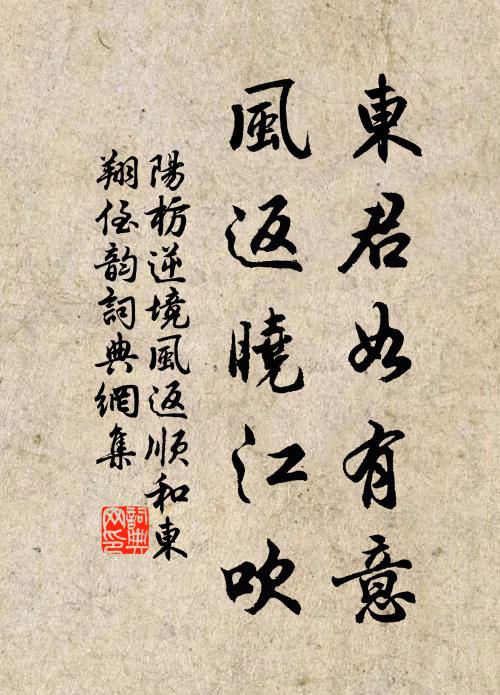 東君如有意
風返曉江吹
陽枋逆境風返順和東
翔侄韵詞典網集
詞典網印